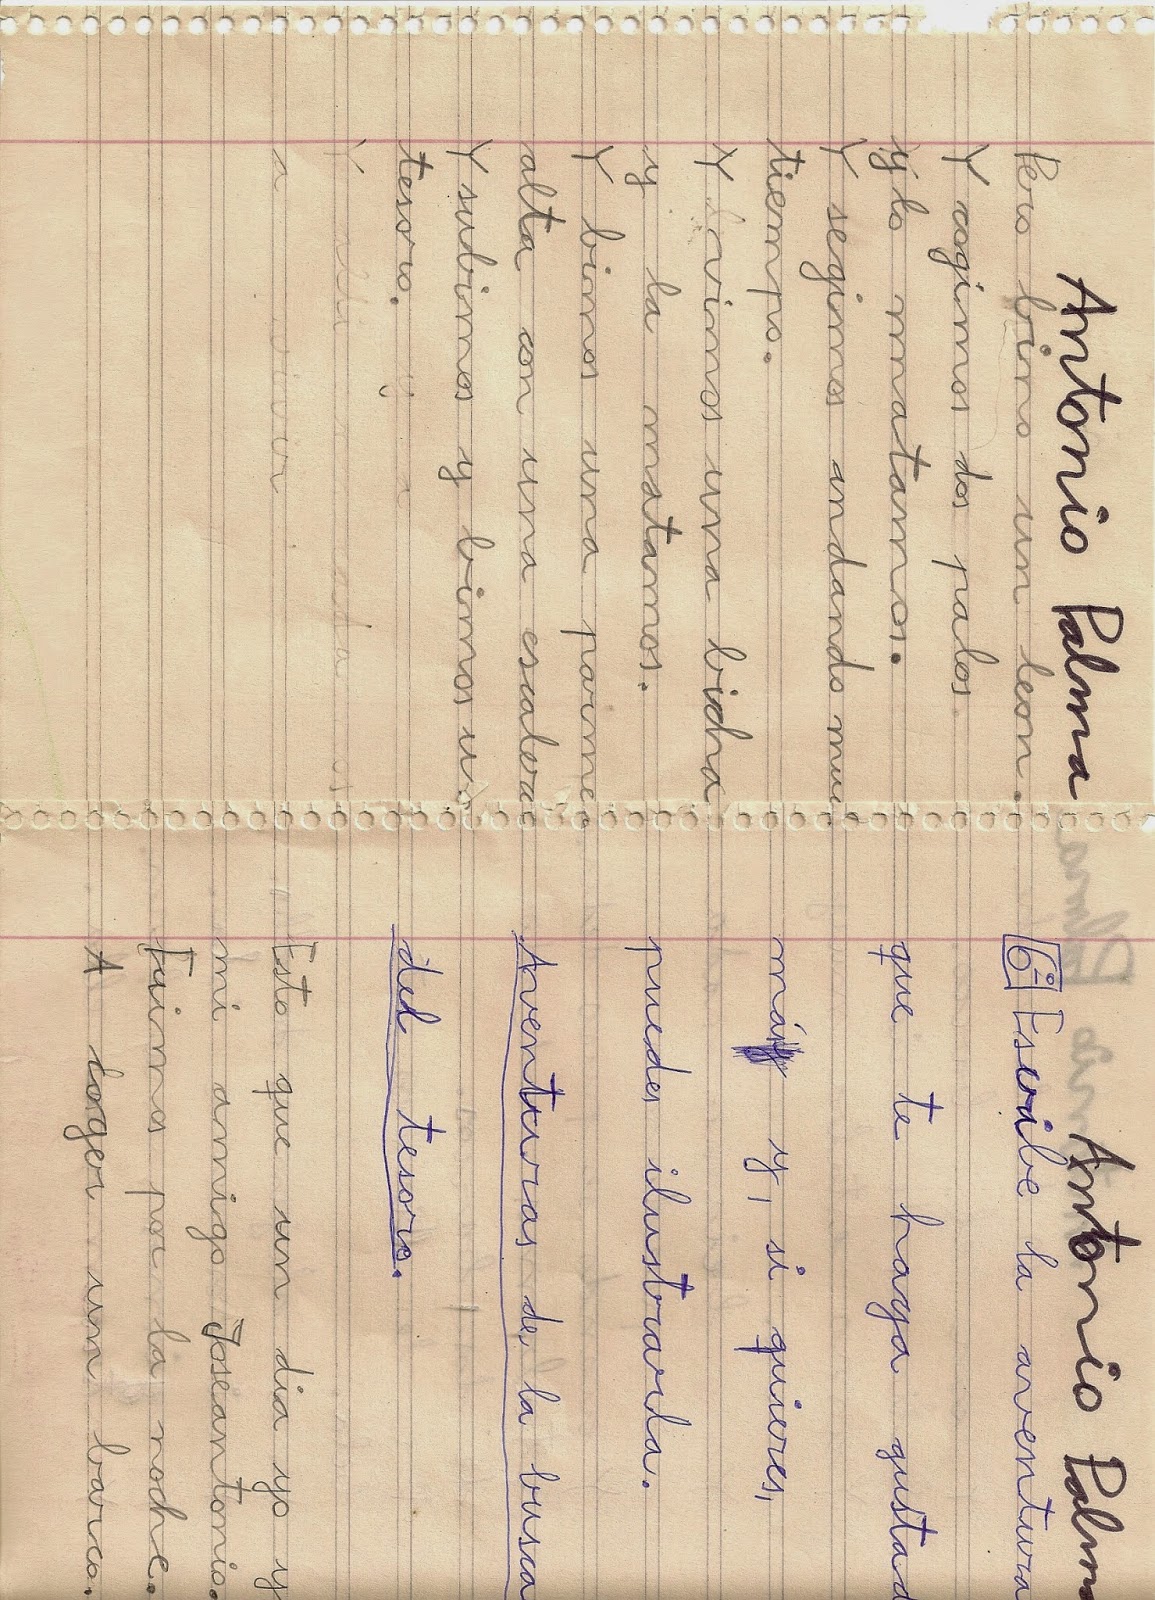 Antonio Palma
Pero bino un leon.
Y cogimos dos palos.
y lo matamos.
Y segimos andando mu
tiempo.
Y vimos una bicha
y la matamos.
Y bimos una parime
alta con una escalera
Y subimos y bimos un
tesoro.
a vivir
Antonio Palma
6º Escribe la aventura
que te haya gustad
más y, si quieres,
puedes ilustrarla.
Aventuras de la busca
del tesoro.
Esto que un dia yo y
mi amigo Joseantonio.
Fuimos por la noche.
A coger um barco.